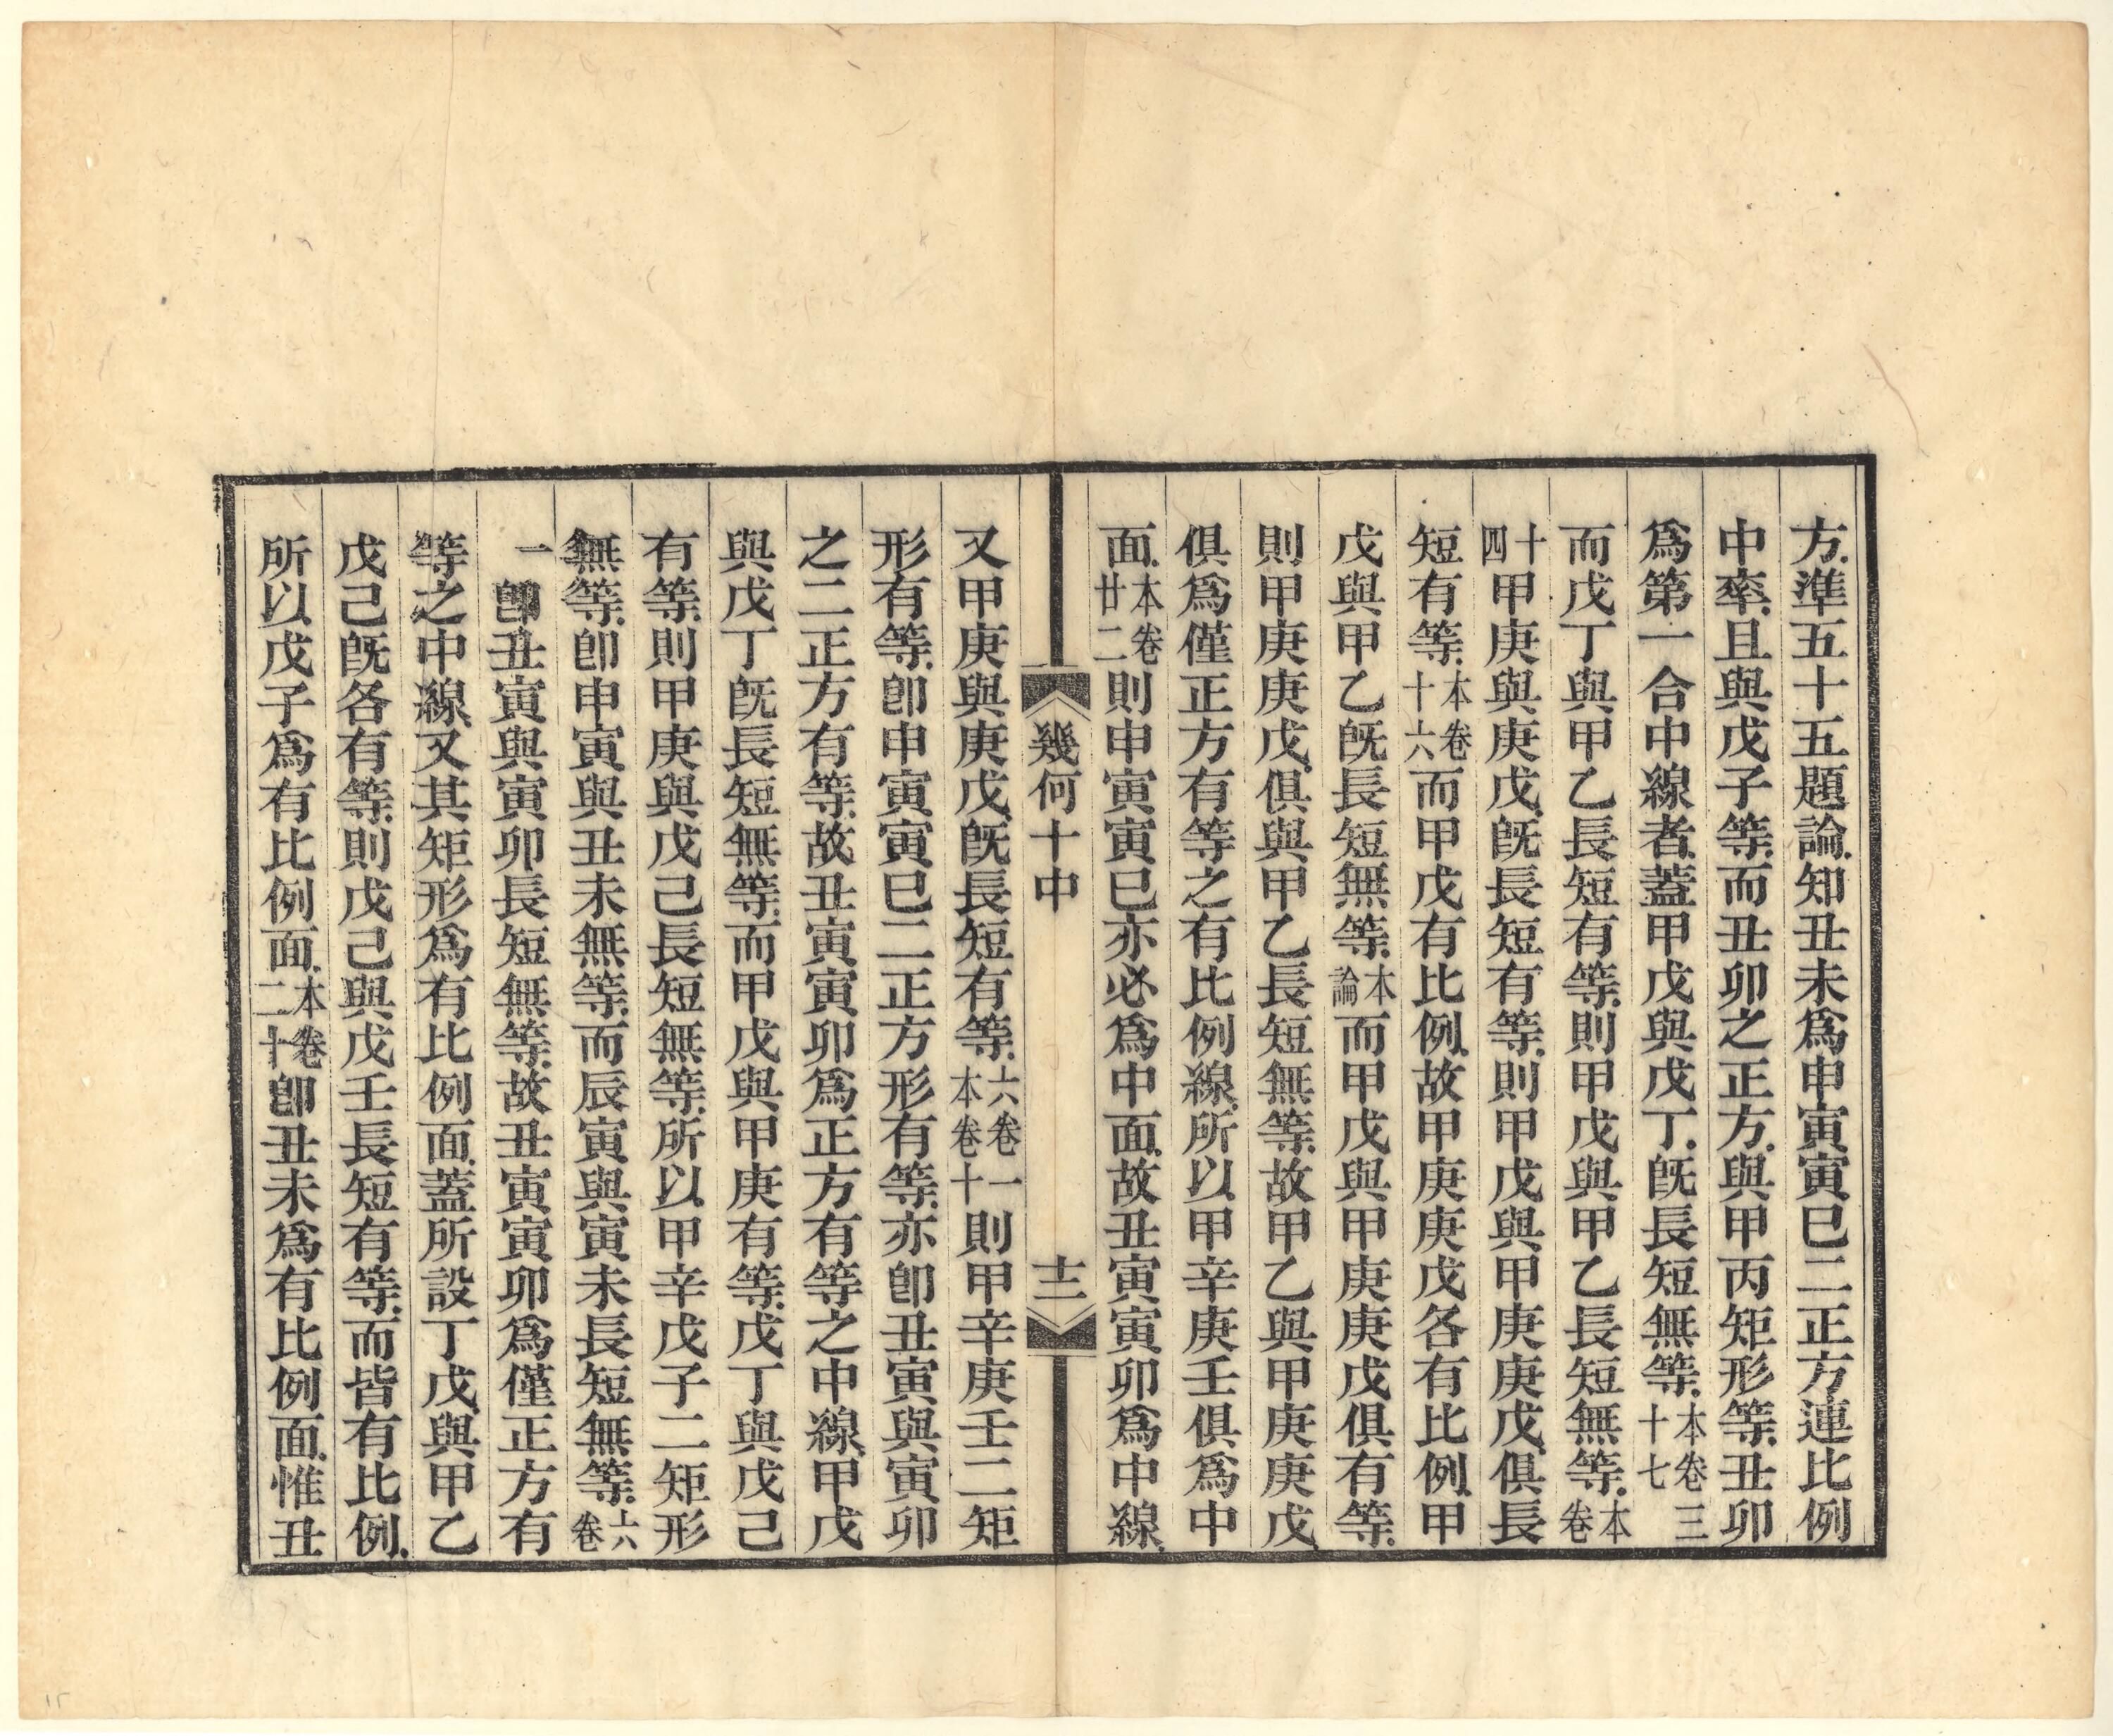 方準五十五題論知丑未爲申寅寅巳二正方連比例
中率且與戊子等而丑卯之正方與甲丙矩形等丑卯
爲第一合中線者蓋甲戊與戊丁旣長短無等本卷三十七
而戊丁與甲乙長短有等則甲戊與甲乙長短無等本卷
十四甲庚與庚戊旣長短有等則甲戊與甲庚庚戊俱長
短有等本卷十六而甲戊有比例故甲庚庚戊各有比例甲
戊與甲乙旣長短無等本論而甲戊與甲庚庚戊俱有等
則甲庚庚戊俱與甲乙長短無等故甲乙與甲庚庚戊
俱爲僅正方有等之有比例線所以甲辛庚壬俱爲中
面本卷廿二則申寅寅巳亦必爲中面故丑寅寅卯爲中線
幾何十中 十二
又甲庚與庚戊旣長短有等六卷一本卷十則甲辛庚壬二矩
形有等卽申寅寅巳二正方形有等亦卽丑寅與寅卯
之二正方有等故丑寅寅卯爲正方有等之中線甲戊
與戊丁旣長短無等而甲戊與甲庚有等戊丁與戊己
有等則甲庚與戊己長短無等所以甲辛戊子二矩形
無等卽申寅與丑未無等而辰寅與寅未長短無等六卷
一卽丑寅與寅卯長短無等故丑寅寅卯爲僅正方有
等之中線又其矩形爲有比例面蓋所設丁戊與甲乙
戊己旣各有等則戊己與戊壬長短有等而皆有比例
所以戊子爲有比例面本卷二十卽丑未爲有比例面惟丑